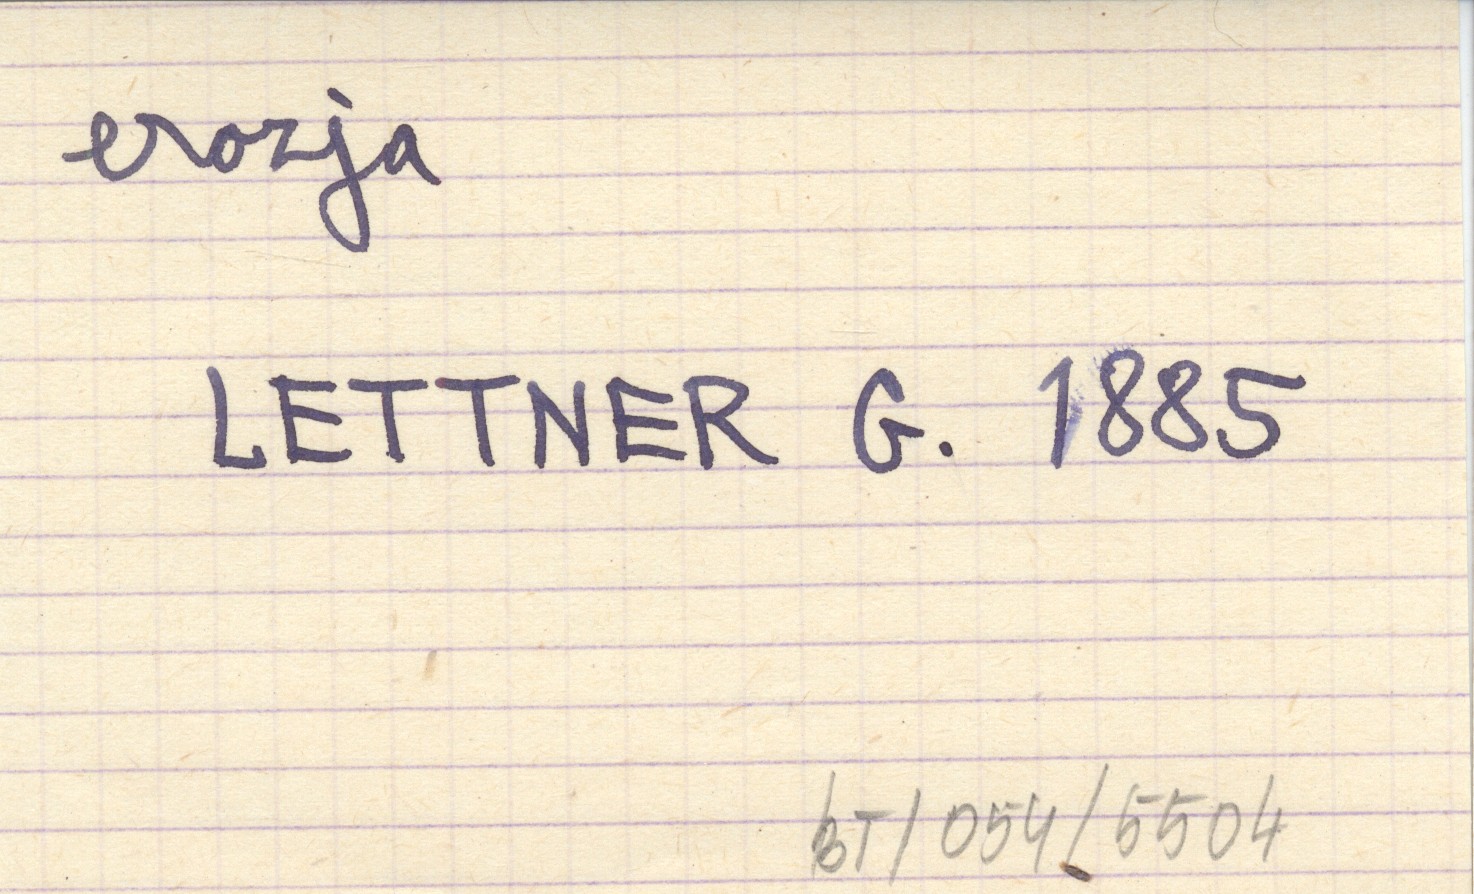 erozja
LETTNER G. 1885
BT/054/5504